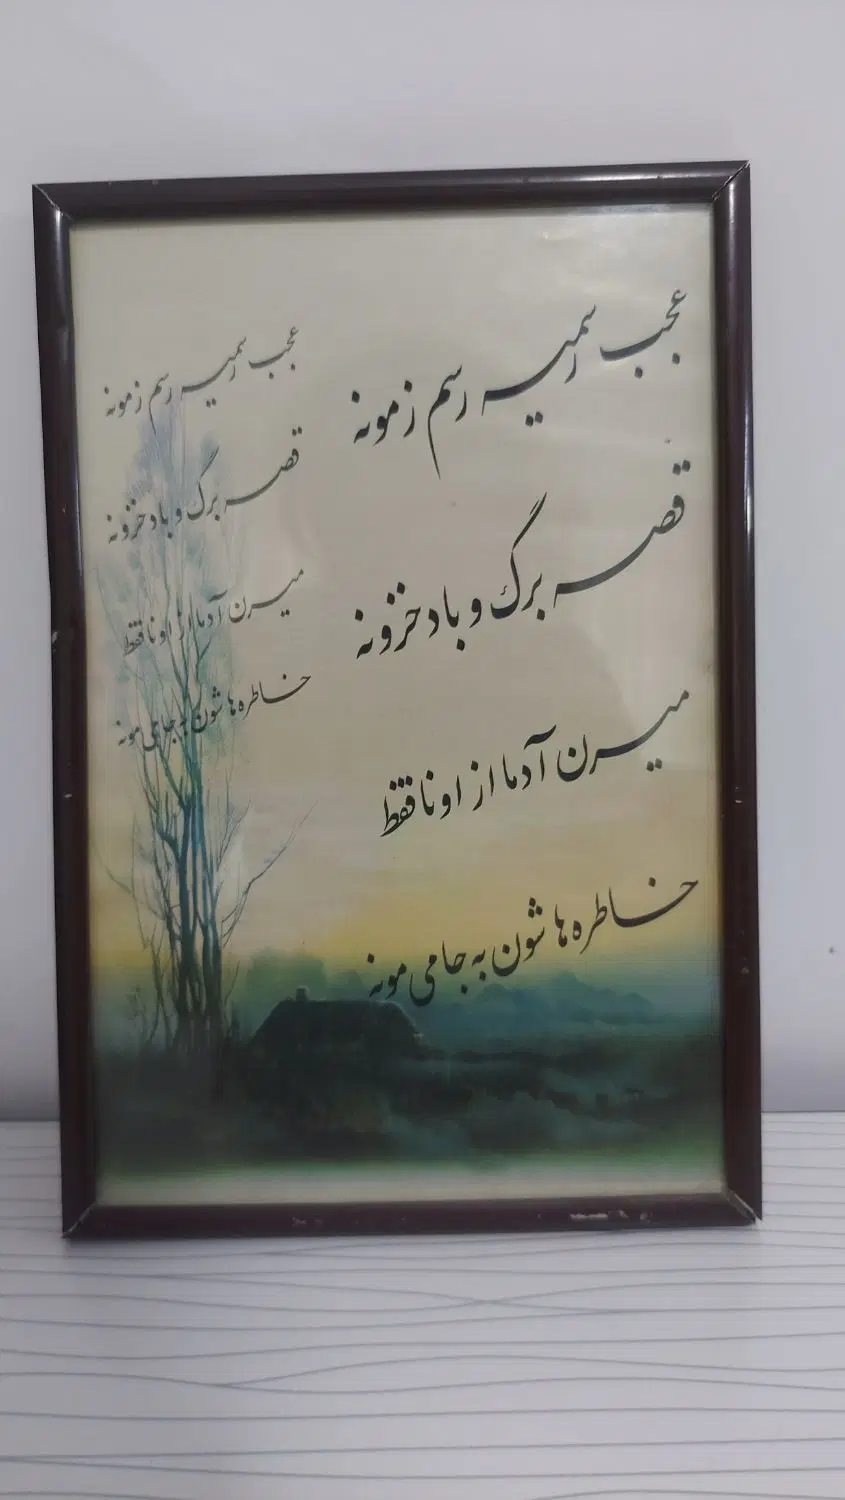 عجب رسمیه رسم زمونه
قصه برگ و باد خزونه
میرن آدما از اونا فقط
خاطره ها شون به جا می مونه
عجب رسمیه رسم زمونه
قصه برگ و باد خزونه
میرن آدما از اونا فقط
خاطره ها شون به جا می مونه